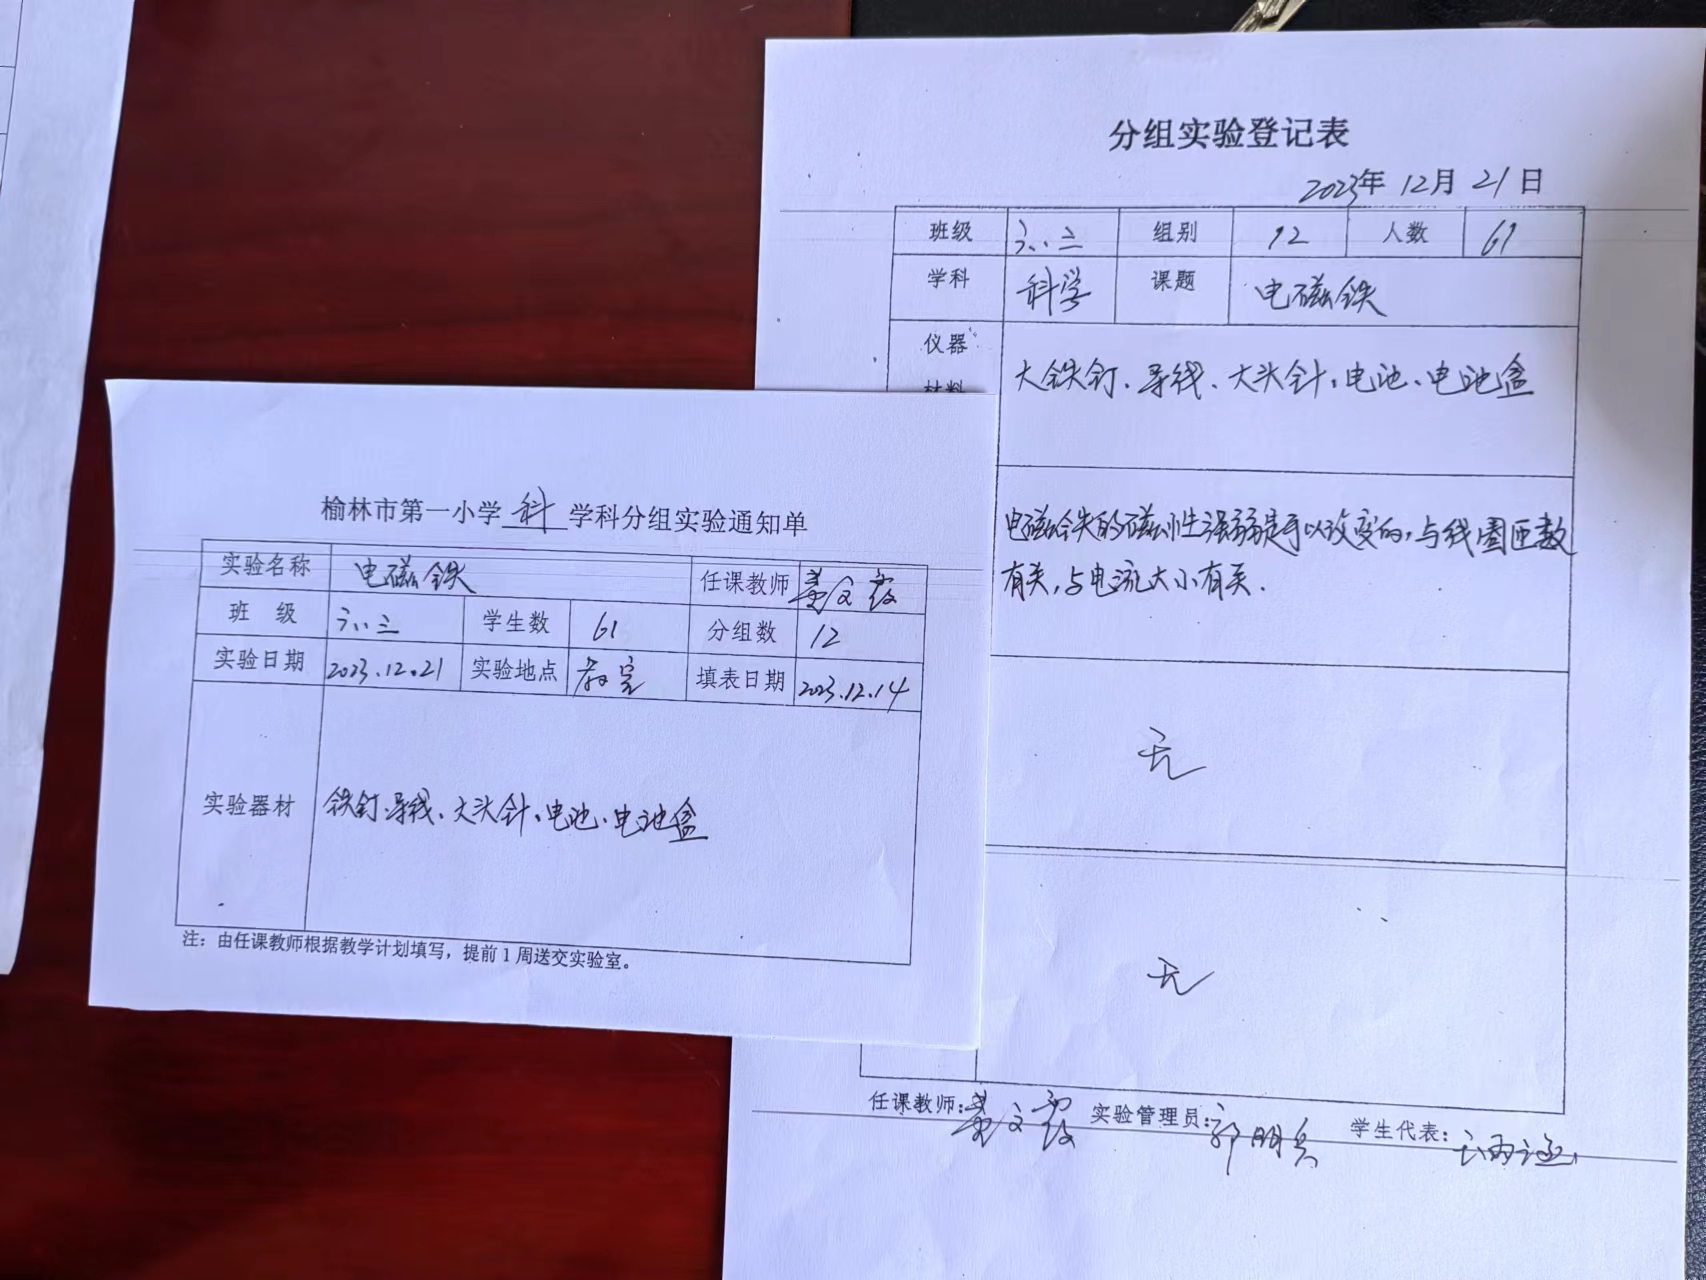 分组实验登记表
2023年 12月 21日
班级 六.三 组别 12 人数 61
学科 科学 课题 电磁铁
仪器 大铁钉、导线、大头针、电池、电池盒
材料
电磁铁的磁性强弱是可以改变的,与线圈匝数
有关,与电流大小有关.
无
无
任课教师: 实验管理员: 学生代表:
榆林市第一小学 科 学科分组实验通知单
实验名称 电磁铁 任课教师
班 级 六.三 学生数 61 分组数 12
实验日期 2023.12.21 实验地点 教室 填表日期 2023.12.14
实验器材 铁钉、导线、大头针、电池、电池盒
注：由任课教师根据教学计划填写，提前1周送交实验室。